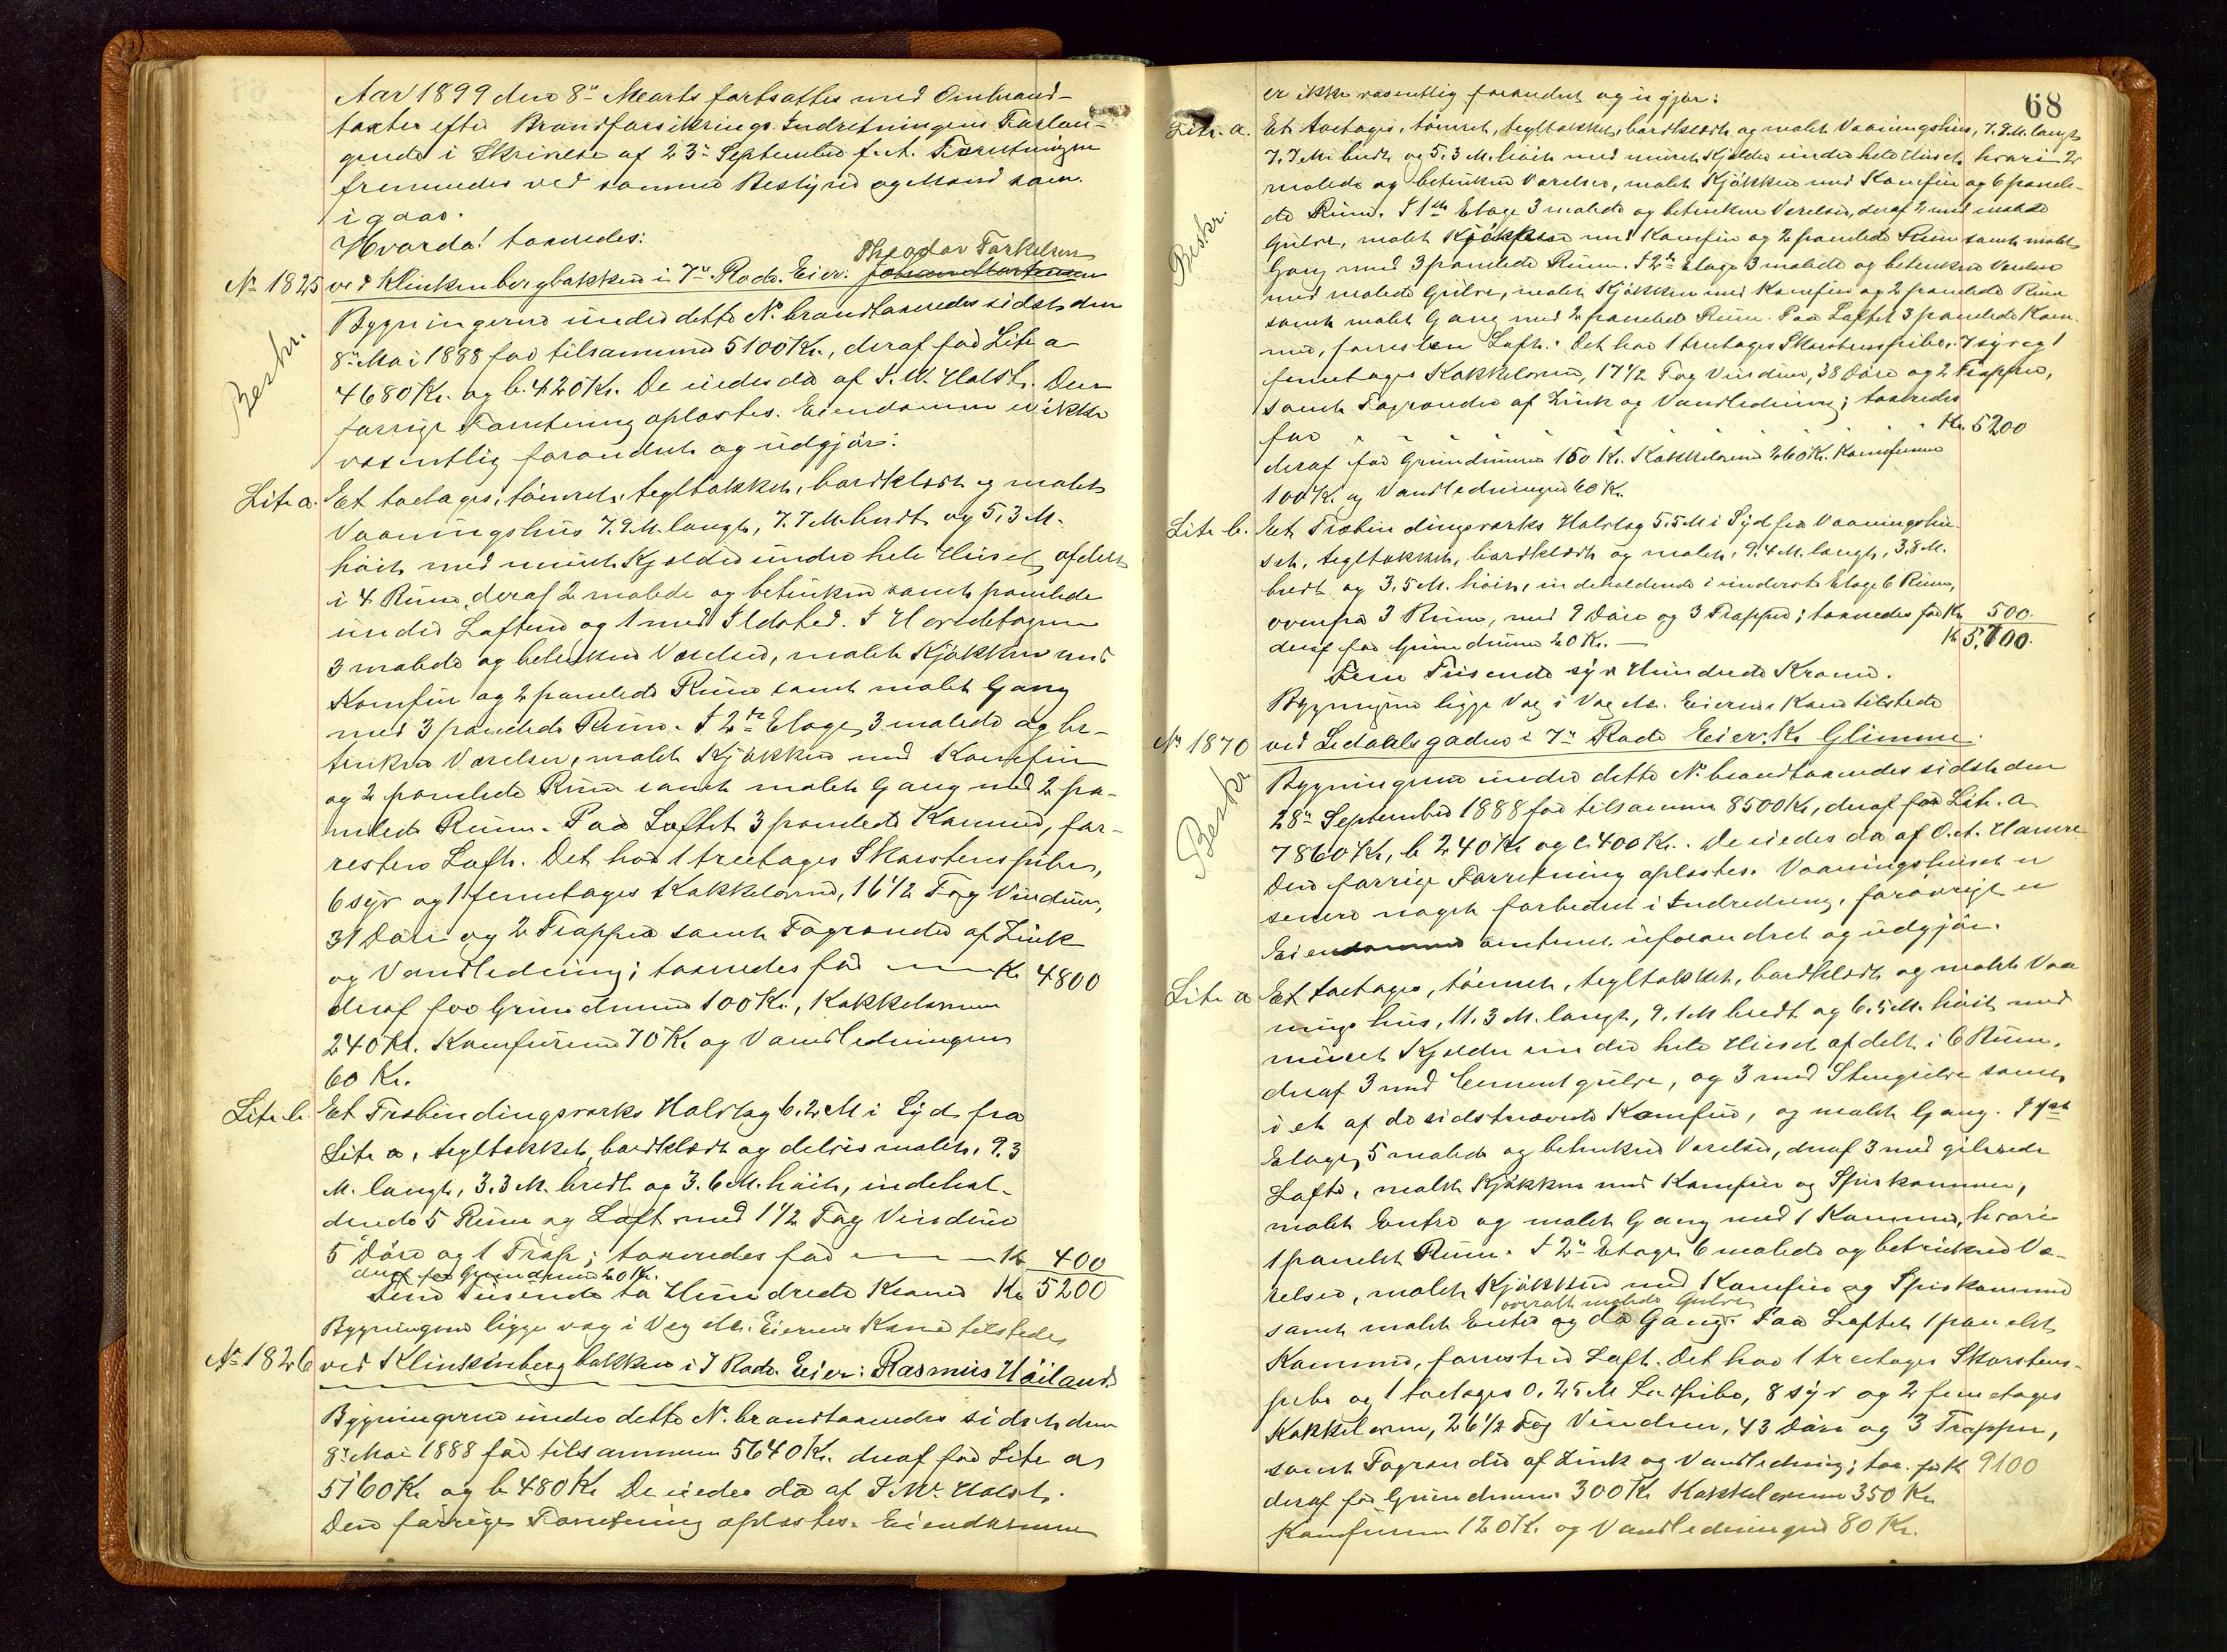 Aar 1899 den 8de Marts fortsattes med Ombrand-
taxter efter Brandforsikrings-Indretningens Forlan-
gende i Skrivelse af 23de September f. A. Forretningen
fremmedes ved samme Bestyrer og Mænd som
igaar.
Hvorda! taxeredes:
Theodor Torkelsen
No 1825 ved Klinkenbergbakken i 7de Rode. Eier:
Beskr.
Bygningerne under dette No. brandtaxeredes sidst den
8de Mai 1888 for tilsammen 5100 Kr., deraf for Litr a
4680 Kr. og b. 420 Kr. De eiedes da af J. W. Holst. Den
forrige Forretning oplæstes. Eiendommen er ikke
væsentlig forandret og udgjør:
Litr a. Et toetages, tømret, tegltækket, bordklædt og malet
Vaaningshus 7.9 M. langt, 7.7 M. bredt og 5,3 M.
høit med muret Kjælder under hele Huset, afdelt
i 4 Rum, deraf 2 malede og betrukne samt panelede
under Loftene og 1 med Ildsted. I Hovedetagen
3 malede og betrukne Værelser, malet Kjøkken med
Komfur og 2 panelede Rum samt malet Gang
med 3 panelede Rum. I 2den Etage 3 malede og be-
trukne Værelser, malet Kjøkken med Komfur
og 2 panelede Rum samt malet Gang med 2 pa-
nelede Rum. Paa Loftet 3 panelede Kamre, for-
resten Loft. Det har 1 treetages Skorstenspibe,
6 syv og 1 femetages Kakkelovne, 16 1/2 Fag Vinduer,
31 Døre og 2 Trapper samt Tagrender af Zink
og Vandledning; taxeredes for Kr. 4800
deraf for Grundmuren 100 Kr., Kakkelovnene
240 Kr. Komfurerne 70 Kr. og Vandledningen
60 Kr.
Litr b. Et Træbindingsværks Halvtag 6.2 M i Syd fra
Litr a, tegltækket, bordklædt og delvis malet, 9.3
M. langt, 3.3 M. bredt og 3.6 M. høit, indehol-
dende 5 Rum og Loft med 1 1/2 Fag Vinduer
5 Døre og 1 Trap; taxeredes for Kr 400
deraf for Grundmur 20 Kr.
Fem Tusende to Hundrede Kroner Kr 5200
Bygningerne ligger væg i Væg etc. Eierens Kone tilstede
No 1826 ved Klinkenbergbakken i 7 Rode. Eier: Rasmus Høiland
Bygningerne under dette No. brandtaxeredes sidst den
8de Mai 1888 for tilsammen 5640 Kr. deraf for Litr a
5160 Kr og b 480 Kr De eiedes da af J. W. Holst.
Den forrige Forretning oplæstes. Eiendommen
68
er ikke væsentlig forandret og udgjør:
Litr. a. Et toetages, tømret, tegltækket, bordklædt og malet Vaaningshus, 7.9 M. langt
Beskr.
7.7 M. bredt og 5.3 M. høit med muret Kjælder under hele Huset, hvori 2
malede og betrukne Værelser, malet Kjøkken med Komfur og 6 panele-
de Rum. I 1ste Etage 3 malede og betrukne Værelser, deraf 2 med malede
Gulve, malet Kjøkken med Komfur og 2 panelede Rum samt malet
Gang med 3 panelede Rum. I 2den Etage 3 malede og betrukne Værelser
med malede Gulve, malet Kjøkken med Komfur og 2 panelede Rum
samt malet Gang med 2 panelede Rum. Paa Loftet 3 panelede Kam-
mer, forresten Loft. Det har 1 treetages Skorstenspibe, 7 syv og 1
femetages Kakkelovne, 17 1/2 Fag Vinduer, 38 Døre og 2 Trapper,
samt Tagrender af Zink og Vandledning; taxeredes
for Kr. 5200
deraf for Grundmuren 160 Kr. Kakkelovnene 260 Kr. Komfurerne
100 Kr. og Vandledningen 60 Kr.
Litr b. Et Træbindingsværks Halvtag 5.5 M i Syd fra Vaaningshu-
set, tegltækket, bordklædt og malet, 9.4 M. langt, 3.8 M.
bredt og 3.5 M. høit, indeholdende i underste Etage 6 Rum,
ovenpaa 3 Rum, med 9 Døre og 3 Trapper; taxeredes for Kr 500.
deraf for Grundmuren 20 Kr. — Kr 5.700.
Fem Tusende syv Hundrede Kroner.
Bygningerne ligger Væg i Væg etc. Eierens Kone tilstede
No 1870 ved Ledaalsgaden i 7de Rode Eier: K. Glimme.
Beskr
Bygningerne under dette No. brandtaxeredes sidst den
28de September 1888 for tilsammen 8500 Kr., deraf for Litr. a
7860 Kr, b 240 Kr og c. 400 Kr. De eiedes da af O. A. Hamre
Den forrige Forretning oplæstes. Vaaningshuset er
senere noget forbedret i Indredning, forøvrigt er
Eiendommen omtrent uforandret og udgjør.
Litr a Et toetages, tømret, tegltækket, bordklædt og malet Vaa-
ningshus, 11.3 M. langt, 9.1 M bredt og 6.5 M. høit med
muret Kjælder under hele Huset afdelt i 6 Rum,
deraf 3 med Cementgulve, og 3 med Stengulve samt
i et af de sidstnævnte Komfur, og malet Gang. I 1ste
Etage, 5 malede og betrukne Værelser, deraf 3 med
Lofte, malet Kjøkken med Komfur og Spiskammer,
malet Entre og malet Gang med 1 Kammer, hvori
1 panelet Rum. I 2den Etage 6 malede og betrukne Væ-
relser, malet Kjøkken med Komfur og Spiskammer
overalt malede Gulve
samt malet Entre og do Gang. Paa Loftet 1 panelet
Kammer, forresten Loft. Det har 1 treetages Skorstens-
pibe og 1 toetages 0.25 M Luftpibe, 8 syv og 2 femetages
Kakkelovne, 26 1/2 Fag Vinduer, 43 Døre og 3 Trapper,
samt Tagrender af Zink og Vandledning; tax. for Kr 9100
deraf for Grundmuren 300 Kr Kakkelovnene 350 Kr
Komfurerne 120 Kr. og Vandledningen 80 Kr.